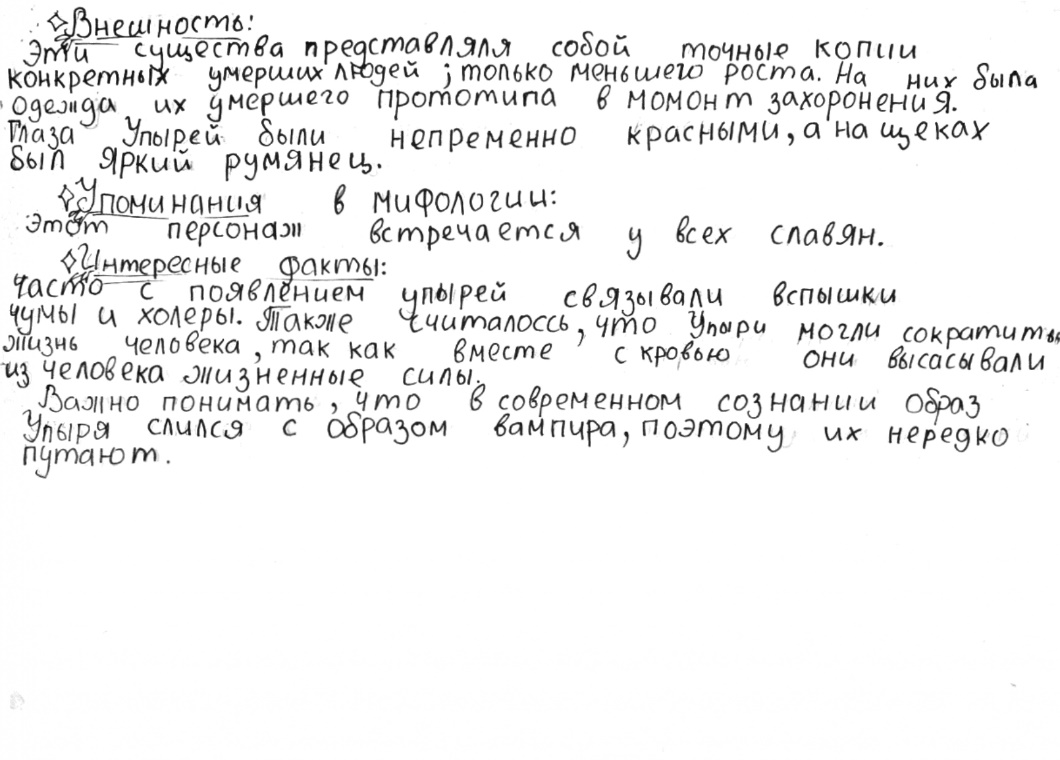 ✧Внешность:
Эти существа представляля собой точные копии
конкретных умерших людей , только меньшего роста. На них была
одежда их умершего прототипа в момонт захоронения.
Глаза Упырей были непременно красными, а на щеках
был яркий румянец.
✧Упоминания в мифологии:
Этот персонаж встречается у всех славян.
✧Интересные факты:
Часто с появлением упырей связывали вспышки
чумы и холеры. Также считалоссь, что Упыри могли сократить
жизнь человека, так как вместе с кровью они высасывали
из человека жизненные силы.
Важно понимать, что в современном сознании образ
Упыря слился с образом вампира, поэтому их нередко
путают.